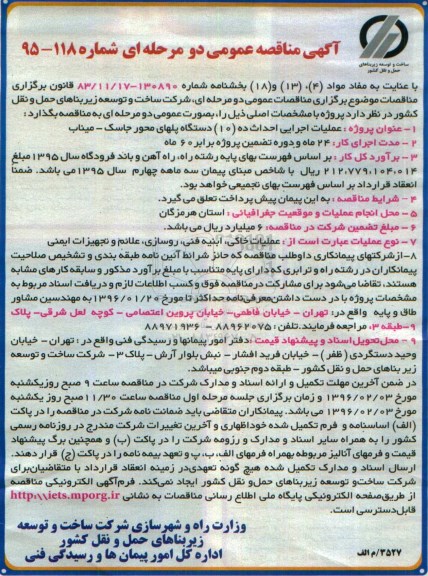 ساخت و توسعه زیربناهای
حمل و نقل کشور
آگهی مناقصه عمومی دو مرحله ای شماره ۱۱۸-۹۵
با عنایت به مفاد مواد (۴)، (۱۳) و(۱۸) بخشنامه شماره ۱۳۰۸۹۰-۸۳/۱۱/۱۷ قانون برگزاری
مناقصات موضوع برگزاری مناقصات عمومی دو مرحله ای، شرکت ساخت و توسعه زیر بناهای حمل و نقل
کشور در نظر دارد پروژه با مشخصات اصلی ذیل را، بصورت عمومی دو مرحله ای به مناقصه بگذارد:
۱- عنوان پروژه : عملیات اجرایی احداث ده (۱۰) دستگاه پلهای محور جاسک - میناب
۲- مدت اجرای کار: ۲۴ ماه و دوره تضمین پروژه برابر ۶۰ ماه
۳- برآورد کل کار : بر اساس فهرست بهای پایه رشته راه، راه آهن و باند فرودگاه سال ۱۳۹۵ مبلغ
۲۱۲،۷۷۹،۱۰۴،۰۱۴ ریال با شاخص مبنای پیمان سه ماهه چهارم سال ۱۳۹۵ می باشد. ضمناً
انعقاد قرارداد بر اساس فهرست بهای تجمیعی خواهد بود.
۴- شرایط مناقصه : به این پیمان پیش پرداخت تعلق می گیرد.
۵- محل انجام عملیات و موقعیت جغرافیائی : استان هرمزگان
۶- مبلغ تضمین شرکت در مناقصه: ۶ میلیارد ریال می باشد.
۷- نوع عملیات عبارت است از : عملیات خاکی، ابنیه فنی، روسازی، علائم و تجهیزات ایمنی
۸-ازشرکتهای پیمانکاری داوطلب مناقصه که حائز شرائط آئین نامه طبقه بندی و تشخیص صلاحیت
پیمانکاران در رشته راه و ترابری که دارای پایه متناسب با مبلغ برآورد مذکور و سابقه کار های مشابه
هستند، تقاضا می شود برای مشارکت در مناقصه فوق و کسب اطلاعات لازم و دریافت اسناد مربوط به
مشخصات پروژه با در دست داشتن معرفی نامه حداکثر تا مورخ ۱۳۹۶/۰۱/۲۰ به مهندسین مشاور
طاق و پایه واقع در: تهران - خیابان فاطمی- خیابان پروین اعتصامی - کوچه لعل شرقی- پلاک
۹-طبقه ۳، مراجعه فرمایند.تلفن: ۸۸۹۶۲۰۷۵ - ۸۸۹۷۱۹۳۶
۹- محل تحویل اسناد و پیشنهاد قیمت : دفتر امور پیمانها و رسیدگی فنی واقع در: تهران - خیابان
وحید دستگردی (ظفر) - خیابان فرید افشار - نبش بلوار آرش - پلاک ۳- شرکت ساخت و توسعه
زیر بناهای حمل و نقل کشور - طبقه دوم جنوبی میباشد.
در ضمن آخرین مهلت تکمیل و ارائه اسناد و مدارک شرکت در مناقصه ساعت ۹ صبح روز یکشنبه
مورخ ۱۳۹۶/۰۲/۰۳ و زمان برگزاری جلسه مرحله اول مناقصه ساعت ۱۱/۳۰ صبح روز یکشنبه
مورخ ۱۳۹۶/۰۲/۰۳ می باشد. پیمانکاران متقاضی باید ضمانت نامه شرکت در مناقصه را در پاکت
(الف) اساسنامه و فرم تکمیل شده خوداظهاری و آخرین تغییرات شرکت مندرج در روزنامه رسمی
کشور را به همراه سایر اسناد و مدارک و رزومه شرکت را در پاکت (ب) و همچنین برگ پیشنهاد
قیمت و فرمهای آنالیز مربوطه بهمراه فرمهای الف، ب، پ و تعهد بیمه نامه را در پاکت (ج) قرار دهند.
ارسال اسناد و مدارک تکمیل شده هیچ گونه تعهدی در زمینه انعقاد قرارداد با متقاضیان برای
شرکت ساخت و توسعه زیربناهای حمل و نقل کشور ایجاد نمی کند. فرم آگهی الکترونیکی مناقصه
از طریق صفحه الکترونیکی پایگاه ملی اطلاع رسانی مناقصات به نشانی http:\\iets.mporg.ir
قابل دسترسی است.
وزارت راه و شهرسازی شرکت ساخت و توسعه
زیربناهای حمل و نقل کشور
اداره کل امور پیمان ها و رسیدگی فنی
۳۵۲۷/م الف